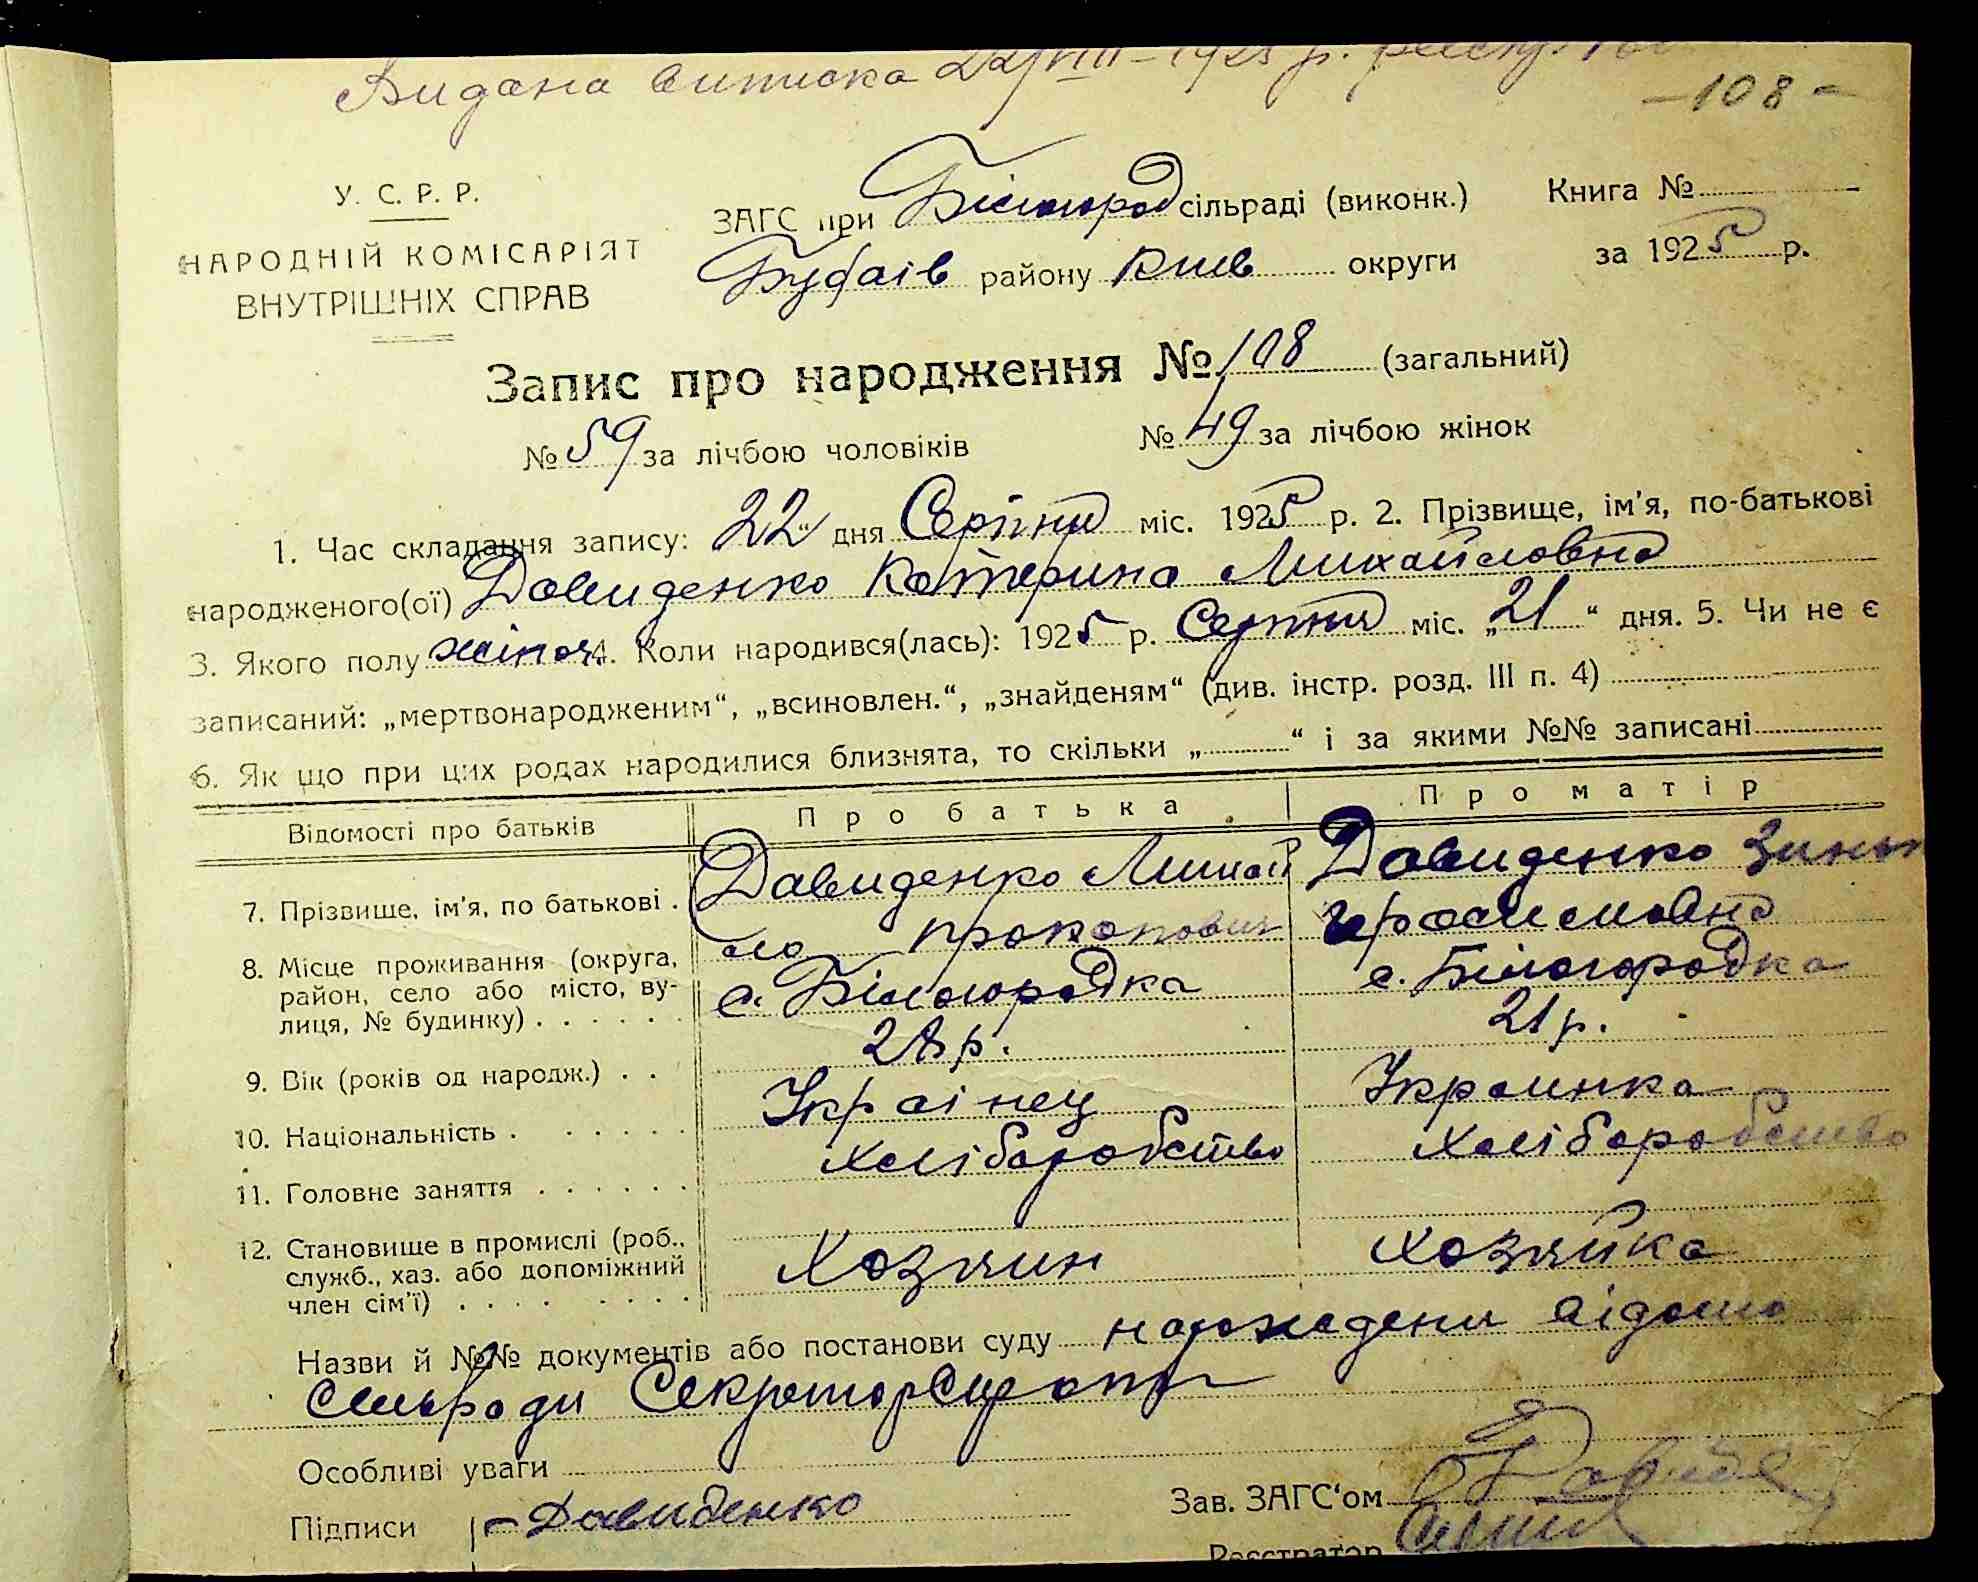 Видана виписка 22/VIII-1925 р.
-108-
У. С. Р. Р.
НАРОДНІЙ КОМІСАРІЯТ
ВНУТРІШНІХ СПРАВ
ЗАГС при Білогород сільраді (виконк.)
Будаів району Київ округи
Книга №
за 1925 р.
Запис про народження № 108 (загальний)
№ 59 за лічбою чоловіків № 49 за лічбою жінок
1. Час складання запису: 22 дня Серпня міс. 1925 р. 2. Прізвище, ім'я, по-батькові
народженого(ої) Давиденко Катерина Михайловна
3. Якого полу жіноч. 4. Коли народився(лась): 1925 р. Серпня міс. „21“ дня. 5. Чи не є
записаний: „мертвонародженим“, „всиновлен.“, „знайденям“ (див. інстр. розд. III п. 4)
6. Як що при цих родах народилися близнята, то скільки „ “ і за якими №№ записані
Відомості про батьків Про батька Про матір
7. Прізвище, ім'я, по батькові . Давиденко Михай Давиденко Зинь
ло прокопович герасимовна
8. Місце проживання (округа, район, село або місто, ву-
лиця, № будинку) . . . . . . с. Білогородка с. Білогородка
9. Вік (років од народж.) . . 28 р. 21 р.
10. Національність . . . . . . Українец Украинка
11. Головне заняття . . . . . . хліборобство хліборобство
12. Становище в промислі (роб.,
служб., хаз. або допоміжний
член сім'ї) . . . . . . . . Хозяин хозяйка
Назви й №№ документів або постанови суду
сельради Секретар
Особливі уваги
Підписи Давиденко
Зав. ЗАГС'ом
Реєстратор